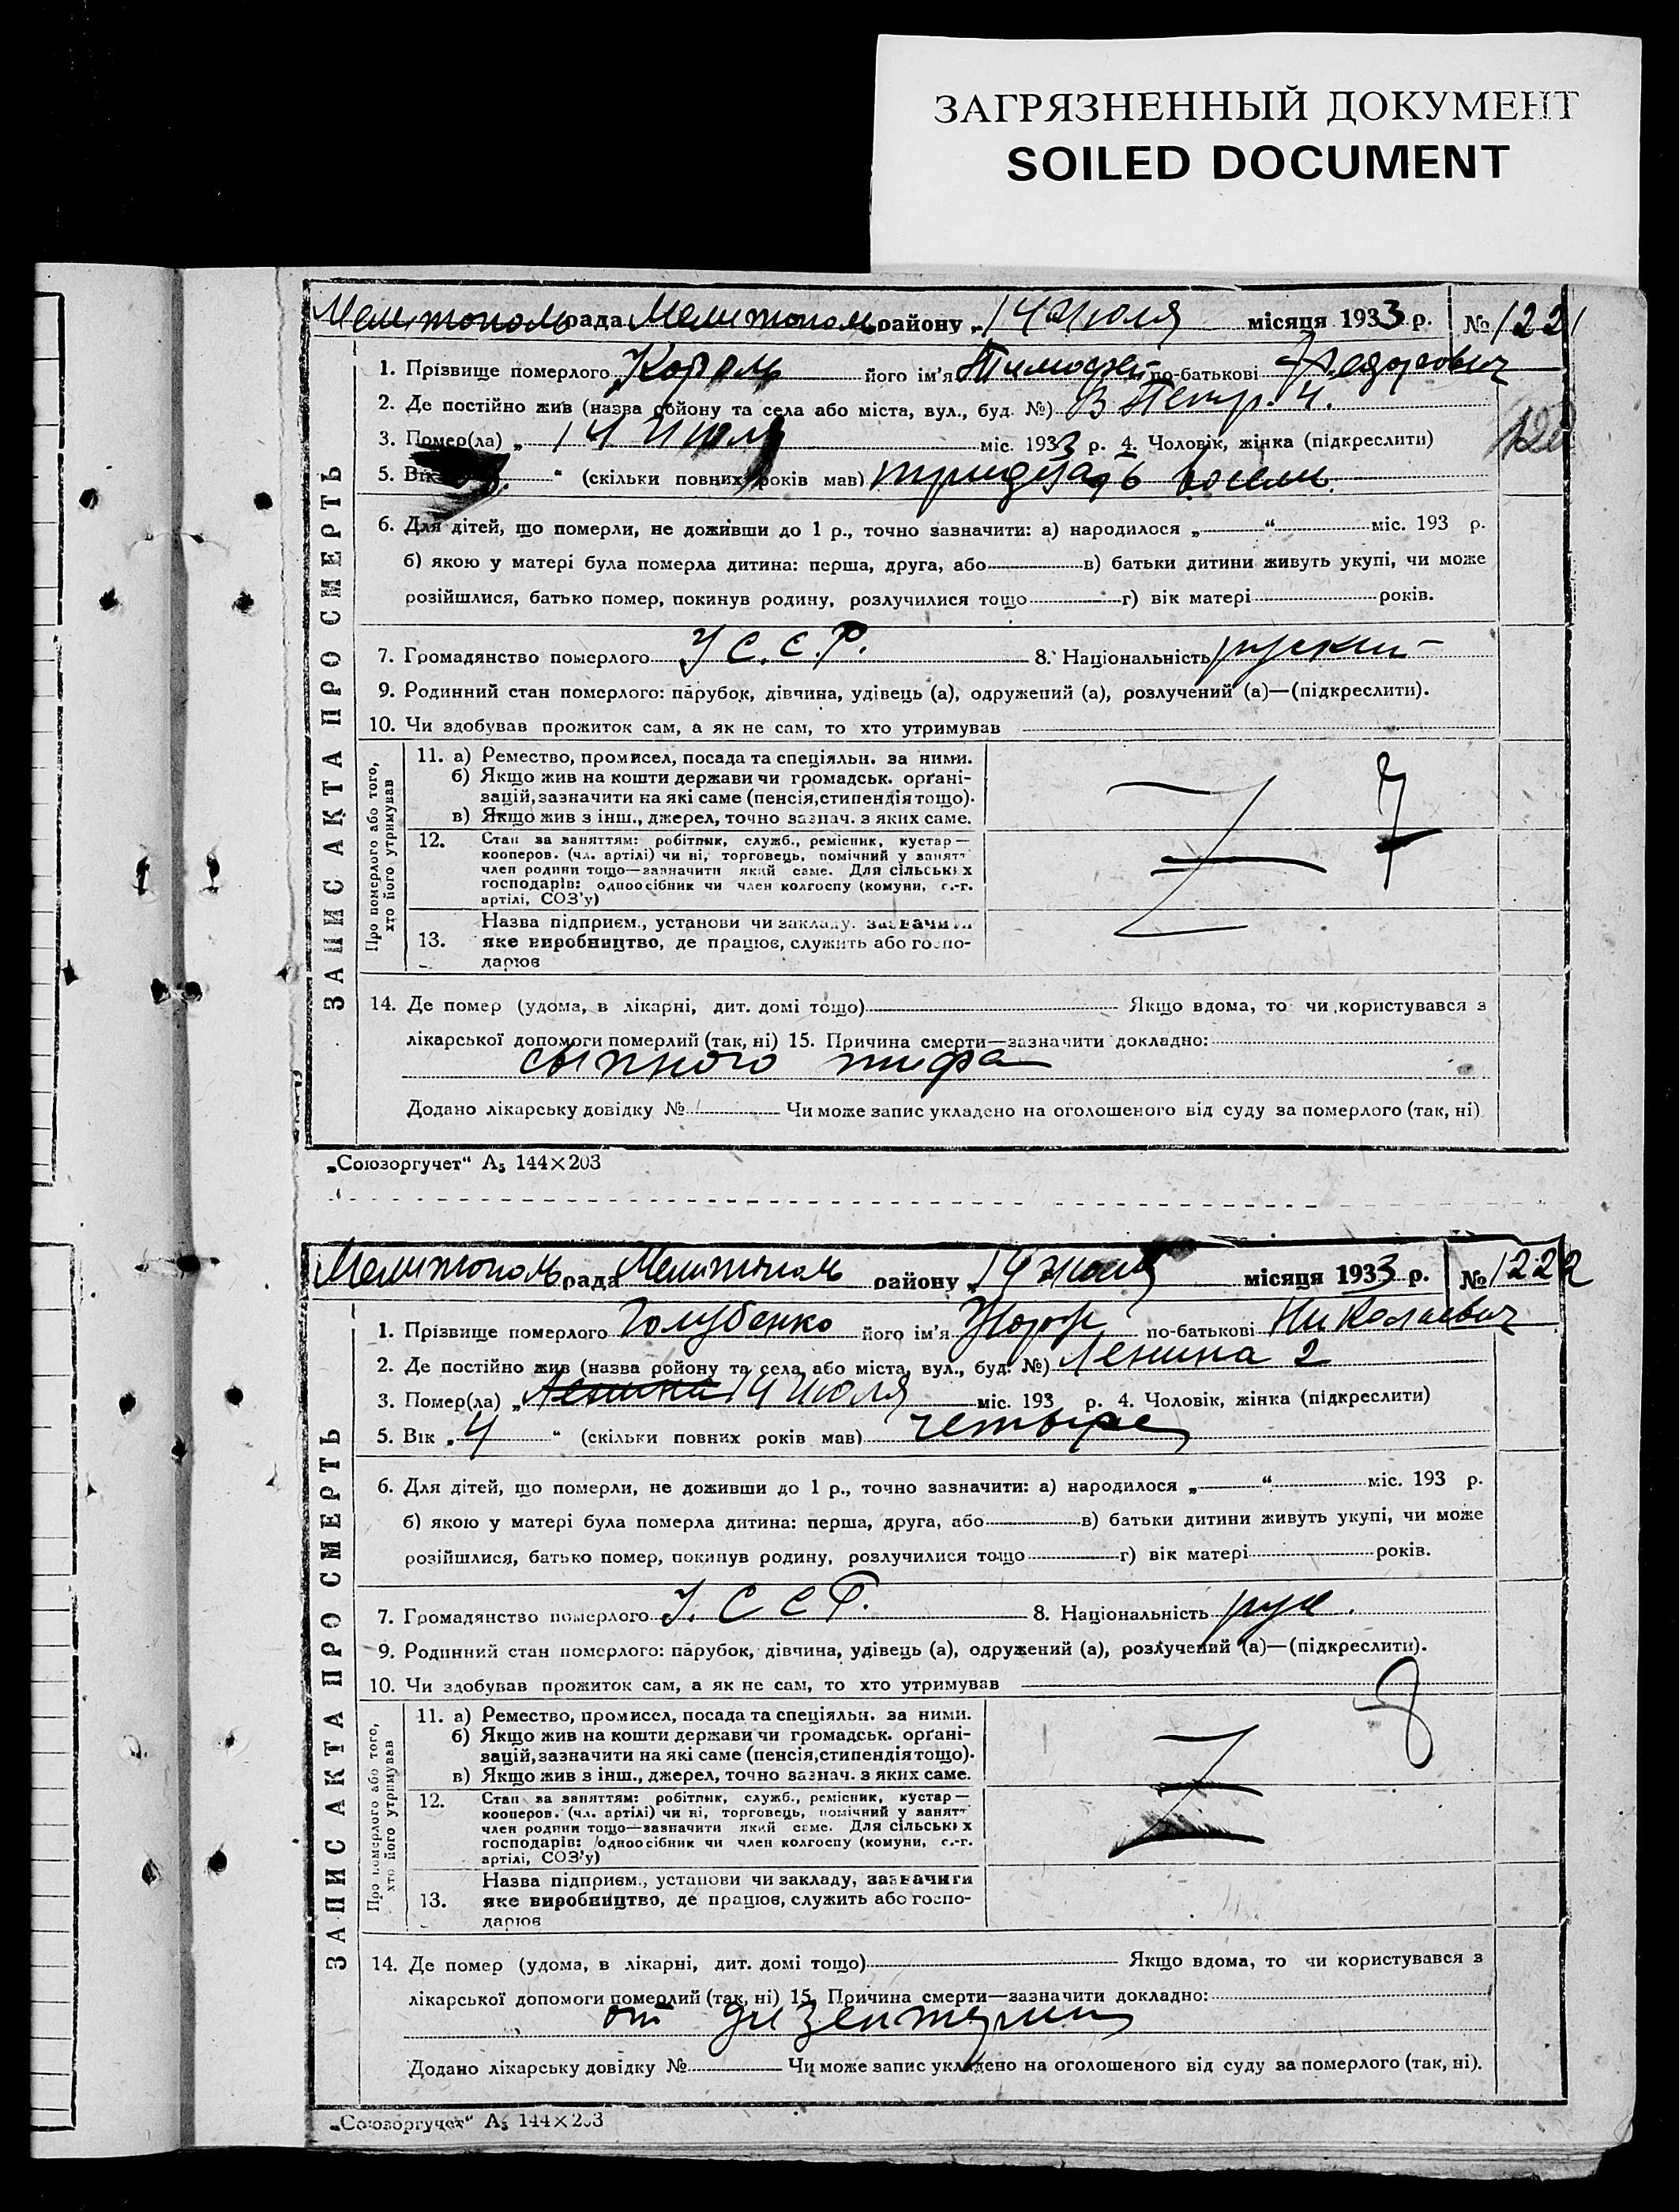 ЗАГРЯЗНЕННЫЙ ДОКУМЕНТ
SOILED DOCUMENT
ЗАПИС АКТА ПРО СМЕРТЬ
Мелитополь рада Мелитополь району „14 Июля місяця 1933 р. № 1221
1. Прізвище померлого Король його ім'я Тимофей по-батькові Федорович
2. Де постійно жив (назва району та села або міста, вул., буд. №) В Петр. 4.
120
3. Помер(ла) „ 14 Июля міс. 1933 р. 4. Чоловік, жінка (підкреслити)
5. Вік “ (скільки повних років мав) тридцадь восем
6. Для дітей, що померли, не доживши до 1 р., точно зазначити: а) народилося „ “ міс. 193 р.
б) якою у матері була померла дитина: перша, друга, або в) батьки дитини живуть укупі, чи може
розійшлися, батько помер, покинув родину, розлучилися тощо г) вік матері років.
7. Громадянство померлого У С.С.Р. 8. Національність руский
9. Родинний стан померлого: парубок, дівчина, удівець (а), одружений (а), розлучений (а)—(підкреслити).
10. Чи здобував прожиток сам, а як не сам, то хто утримував
Про померлого або того, хто його утримував
11. а) Ремество, промисел, посада та спеціяльн. за ними.
б) Якщо жив на кошти держави чи громадськ. орґані-
зацій, зазначити на які саме (пенсія, стипендія тощо).
в) Якщо жив з інш., джерел, точно зазнач. з яких саме.
12. Стан за заняттям: робітник, служб., ремісник, кустар—
кооперов. (чл. артілі) чи ні, торговець, помічний у занятт
член родини тощо—зазначити який саме. Для сільських
господарів: одноосібник чи член колгоспу (комуни, с.-г.
артілі, СОЗ'у)
Назва підприєм., установи чи закладу, зазначити
13. яке виробництво, де працює, служить або госпо-
дарює
14. Де помер (удома, в лікарні, дит. домі тощо) Якщо вдома, то чи користувався з
лікарської допомоги померлий (так, ні) 15. Причина смерти—зазначити докладно:
сыпного тифа
Додано лікарську довідку № Чи може запис укладено на оголошеного від суду за померлого (так, ні)
„Союзоргучет“ А5 144×203
ЗАПИС АКТА ПРО СМЕРТЬ
Мелитополь рада Мелитополь району „14 июля місяця 1933 р. № 1222
1. Прізвище померлого Голубенко його ім'я по-батькові Николаевич
2. Де постійно жив (назва району та села або міста, вул., буд. №) Ленина 2
3. Помер(ла) „ Ленина 14 Июля міс. 193 р. 4. Чоловік, жінка (підкреслити)
5. Вік „ 4 “ (скільки повних років мав) четыре
6. Для дітей, що померли, не доживши до 1 р., точно зазначити: а) народилося „ “ міс. 193 р.
б) якою у матері була померла дитина: перша, друга, або в) батьки дитини живуть укупі, чи може
розійшлися, батько помер, покинув родину, розлучилися тощо г) вік матері років.
7. Громадянство померлого У. С С Р. 8. Національність рус.
9. Родинний стан померлого: парубок, дівчина, удівець (а), одружений (а), розлучений (а)—(підкреслити).
10. Чи здобував прожиток сам, а як не сам, то хто утримував
Про померлого або того, хто його утримував
11. а) Ремество, промисел, посада та спеціяльн. за ними.
б) Якщо жив на кошти держави чи громадськ. орґані-
зацій, зазначити на які саме (пенсія, стипендія тощо).
в) Якщо жив з інш., джерел, точно зазнач. з яких саме.
12. Стан за заняттям: робітник, служб., ремісник, кустар—
кооперов. (чл. артілі) чи ні, торговець, помічний у занятт
член родини тощо—зазначити який саме. Для сільських
господарів: одноосібник чи член колгоспу (комуни, с.-г.
артілі, СОЗ'у)
Назва підприєм., установи чи закладу, зазначити
13. яке виробництво, де працює, служить або госпо-
дарює
14. Де помер (удома, в лікарні, дит. домі тощо) Якщо вдома, то чи користувався з
лікарської допомоги померлий (так, ні) 15. Причина смерти—зазначити докладно:
от дизентерии
Додано лікарську довідку № Чи може запис укладено на оголошеного від суду за померлого (так, ні).
„Союзоргучет“ А5 144×203